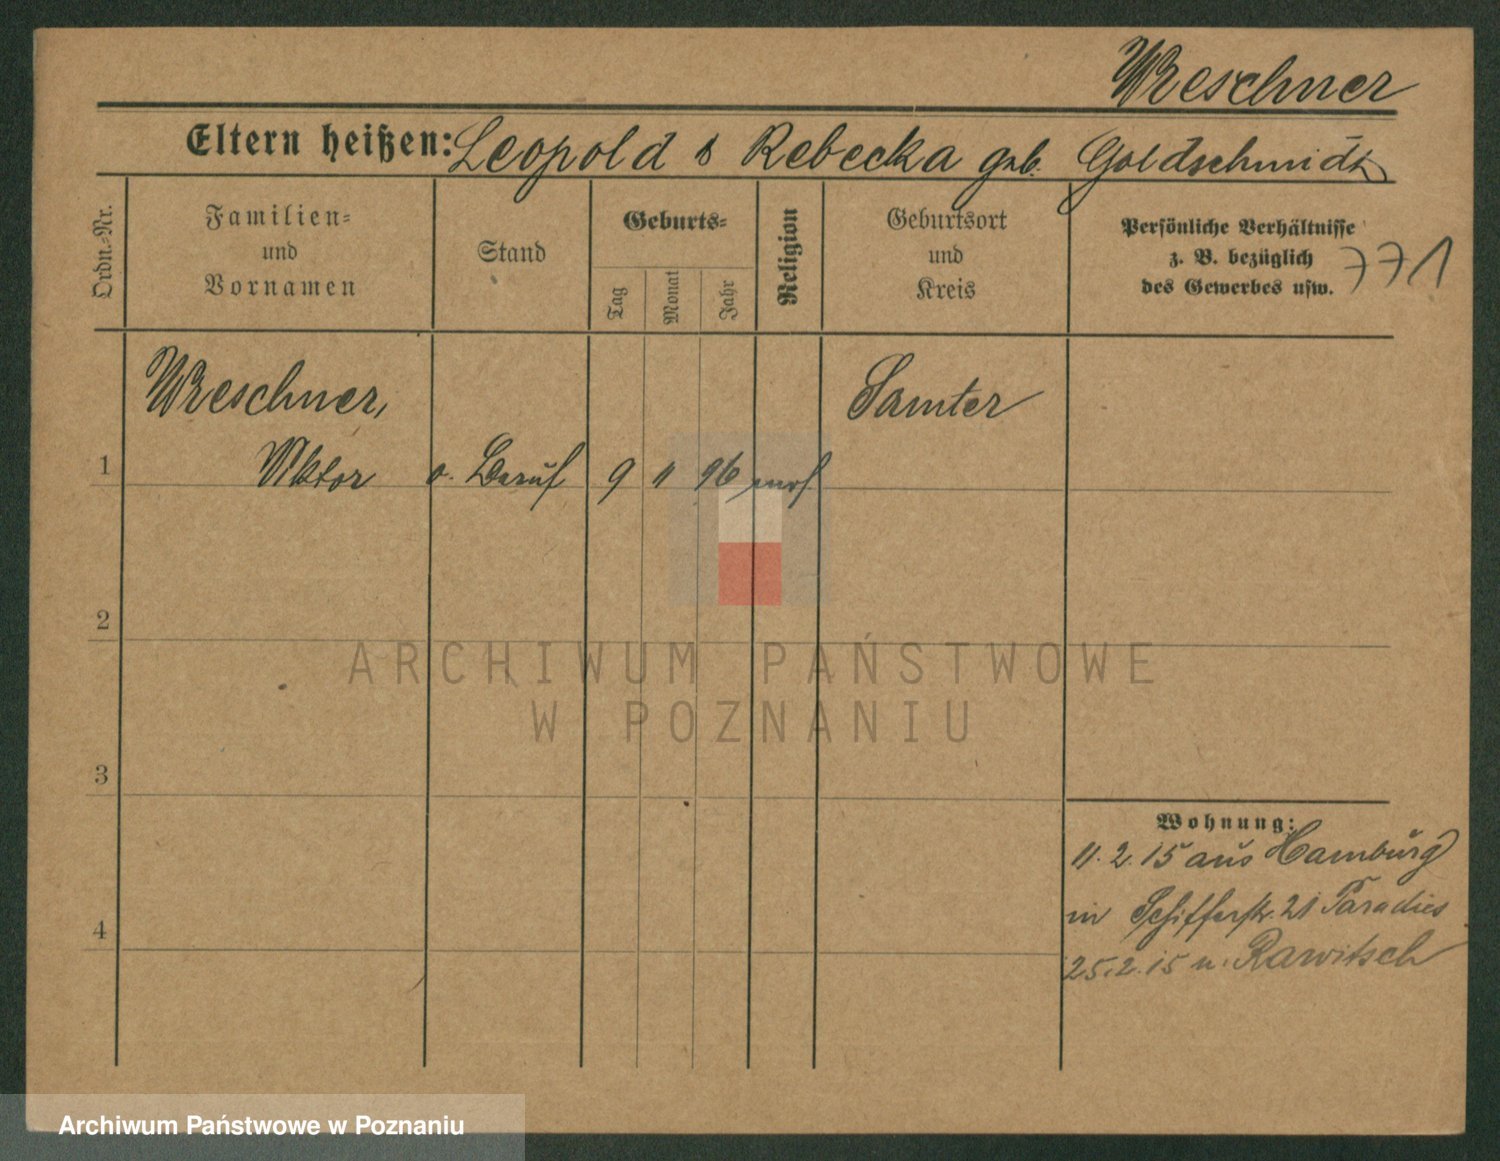 Wreschner
Eltern heißen: Leopold & Rebecka geb. Goldschmidt
Ordn.-Nr.
Familien-
und
Vornamen
Stand
Geburts-
Tag
Monat
Jahr
Religion
Geburtsort
und
Kreis
Persönliche Verhältnisse
z. B. bezüglich
des Gewerbes usw.
771
Wreschner,
Samter
1 Viktor o. Beruf 9 11 96 mos.
2
3
4
Wohnung:
11. 2. 15 aus Hamburg
in Schifferstr. 21 Paradies
25. 2. 15 n. Rawitsch
ARCHIWUM PAŃSTWOWE
W POZNANIU
Archiwum Państwowe w Poznaniu